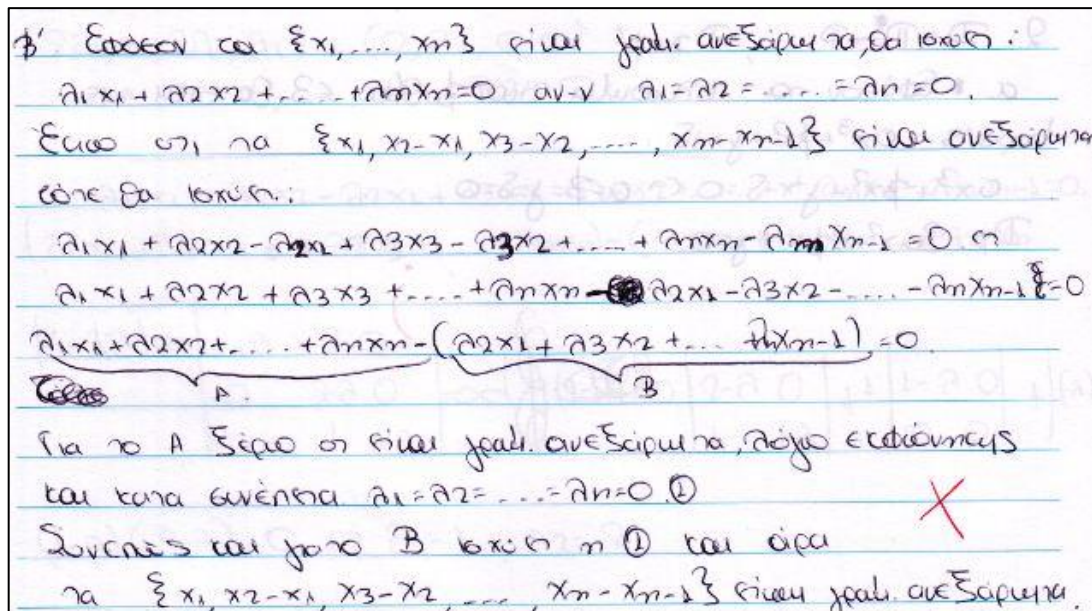 β' Εφόσον τα {x1, ..., xn} είναι γραμ. ανεξάρτητα, θα ισχύει:
λ1x1 + λ2x2 + ..... + λnxn = 0 αν-ν λ1 = λ2 = ..... = λn = 0.
Έστω οτι τα {x1, x2-x1, x3-x2, ....., xn-xn-1} είναι ανεξάρτητα
τότε θα ισχύει:
λ1x1 + λ2x2 - λ2x1 + λ3x3 - λ3x2 + ..... + λnxn - λnxn-1 = 0 ⇔
λ1x1 + λ2x2 + λ3x3 + ..... + λnxn - λ2x1 - λ3x2 - ..... - λnxn-1 = 0
λ1x1 + λ2x2 + ..... + λnxn - (λ2x1 + λ3x2 + ... + λnxn-1) = 0.
A. B
Για το Α ξέρω οτι είναι γραμ. ανεξάρτητα, λόγω εκφώνησης
και κατα συνέπεια λ1 = λ2 = ..... = λn = 0 ①
Συνεπώς και για το Β ισχύει η ① και άρα
τα {x1, x2-x1, x3-x2, ....., xn-xn-1} είναι γραμ. ανεξάρτητα.